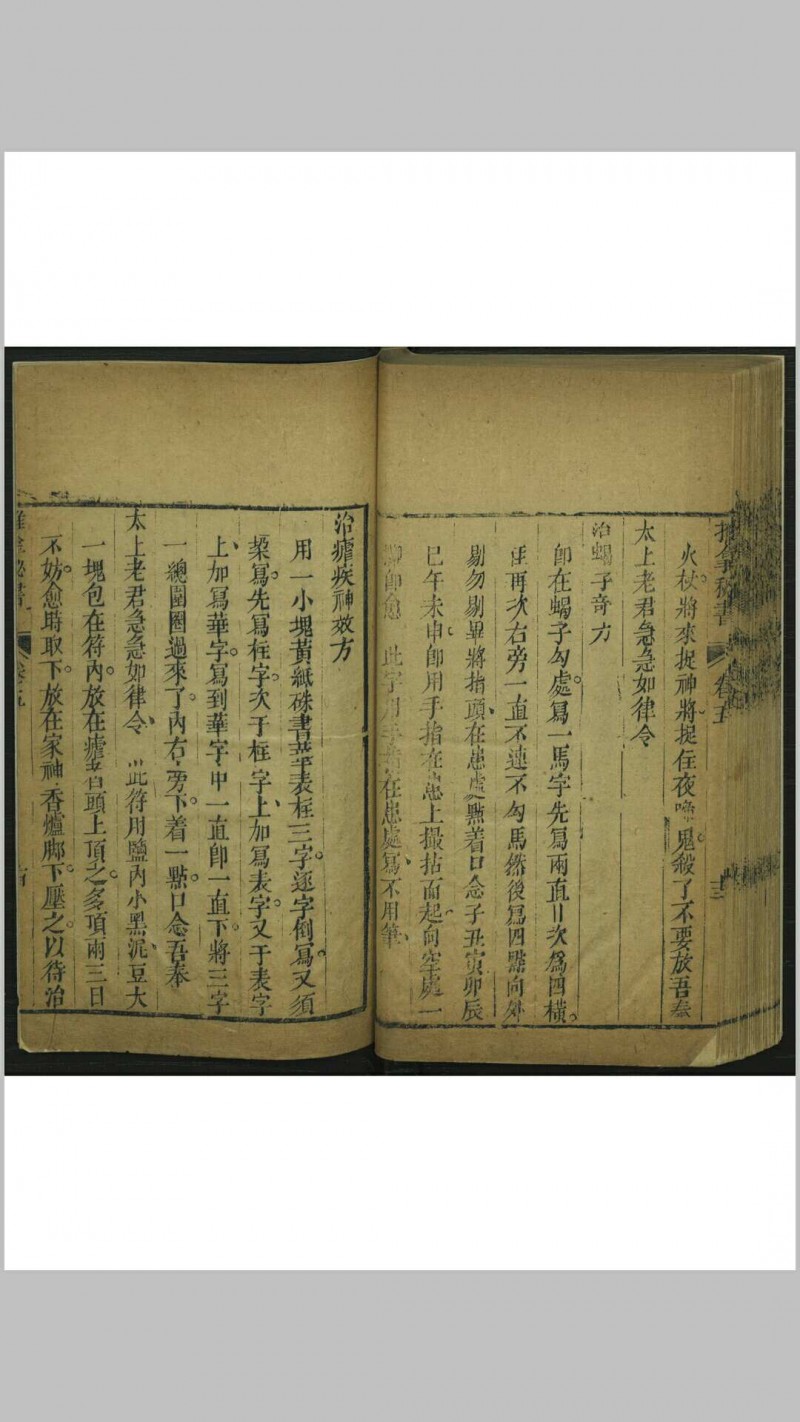 卷五
火杖將來捉神將捉住夜啼鬼殺了不要放吾奉
太上老君急急如律令
治蝎子奇方
卽在蝎子勾處寫一馬字先寫兩直次爲四橫
再次右旁一直不連不勾馬然後寫四點向外
剔勿剔畢將指頭在患處點着口念子丑寅卯辰
巳午未申卽用手指在患上撮拈而起向空處一
卽愈 此字用手指在患處寫不用筆
治瘧疾神效方
用一小塊黃紙硃書華表柱三字逐字倒寫又須
寫先寫柱字次于柱字上加寫表字又于表字
上加寫華字寫到華字中一直卽一直下將三字
一總圍圈過來了內右旁下着一點口念吾奉
太上老君急急如律令 此符用鹽內小黑泥豆大
一塊包在符內放在瘧者頭上頂之多頂兩三日
不妨愈時取下放在家神香爐脚下壓之以待治
卷五